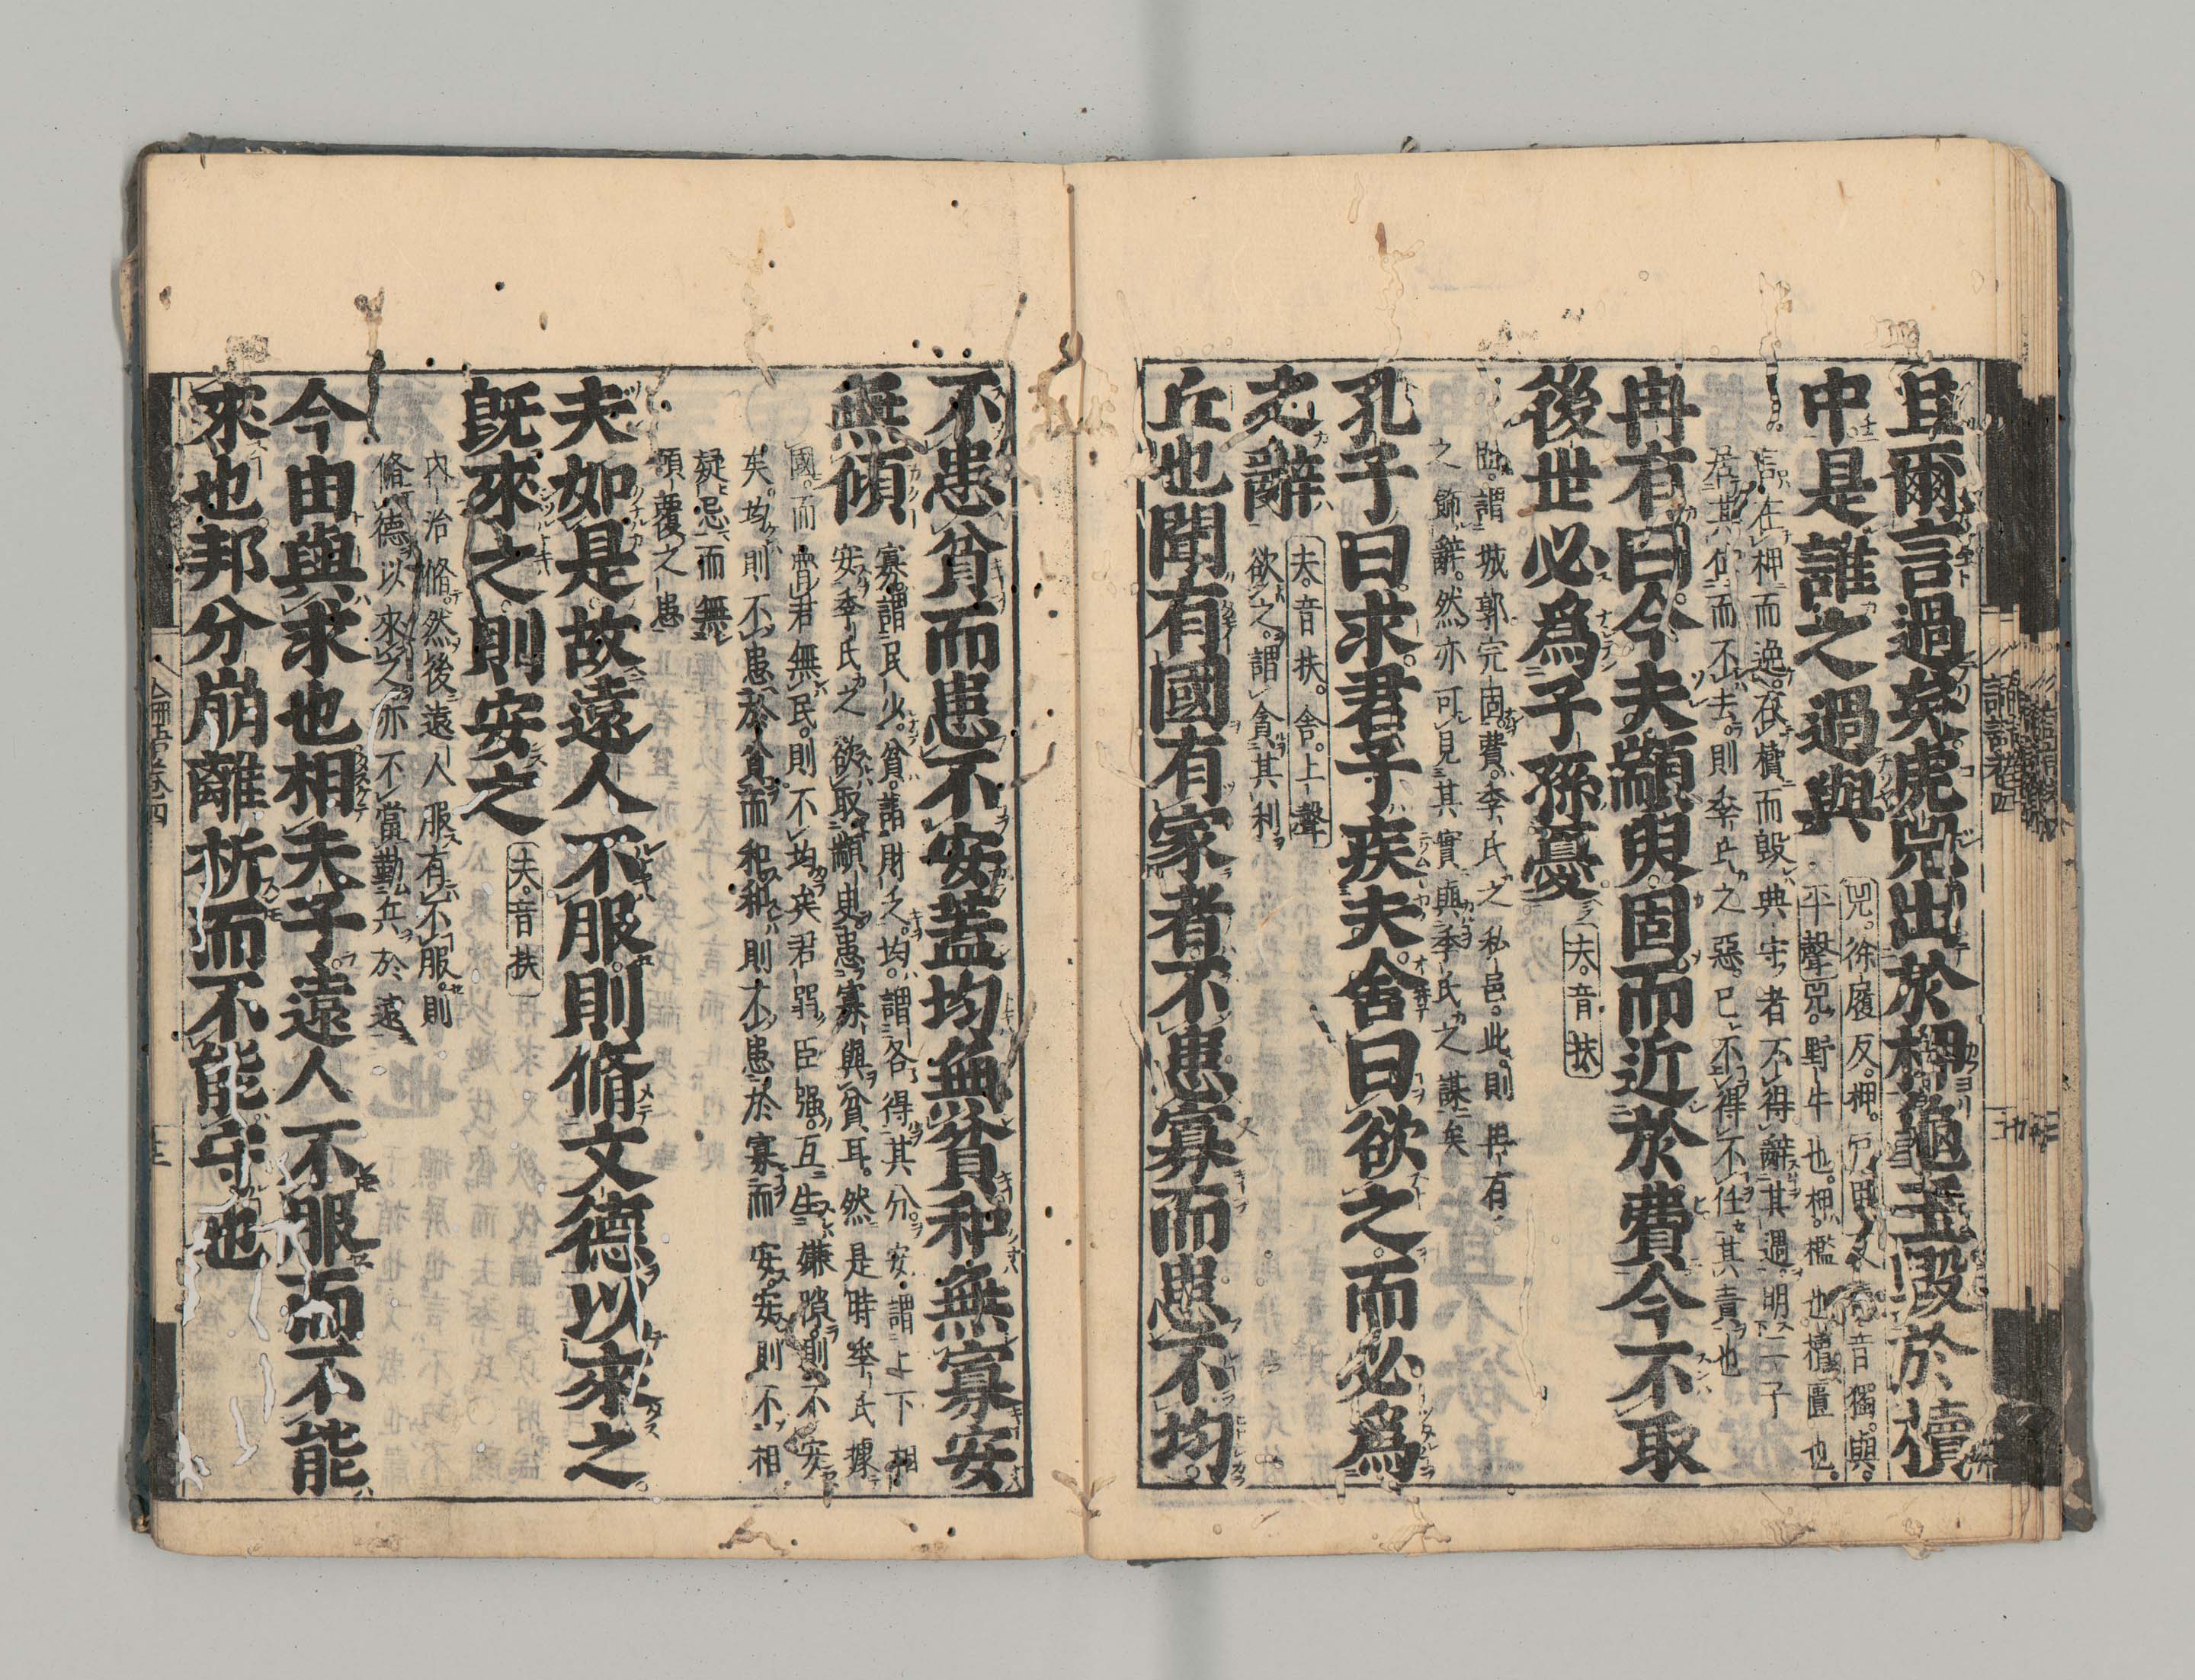 且爾言過矣虎兕出於柙龜玉毀於櫝
中是誰之過與
兕。徐履反。柙。戶甲反。櫝。音獨。與。
平聲兕。野牛也。柙。檻也。櫝。匱也。
言在柙而逸。在櫝而毀典守者不得辭其過。明二子
居其位而不去。則季氏之惡。已不得不任其責也
冉有曰今夫顓臾固而近於費今不取
後世必爲子孫憂
夫。音扶
固。謂城郭完固。費。季氏之私邑。此。則冉有
之飾辭。然亦可見其實與季氏之謀矣
孔子曰求君子疾夫舍曰欲之而必爲
之辭
夫。音扶。舍。上聲
欲之。謂貪其利
丘也聞有國有家者不患寡而患不均
不患貧而患不安蓋均無貧和無寡安
無傾
寡謂民少。貧。謂財乏。均。謂各得其分。安。謂上下相
安季氏之欲取顓臾患寡與貧耳。然是時季氏據
國。而魯君無民。則不均矣君弱臣强。互生嫌隙。則不安
矣。均則不患於貧而和和則不患於寡而安。安則不相
疑忌。而無
傾覆之患
夫如是故遠人不服則脩文德以來之
旣來之則安之
夫。音扶
內治脩。然後遠人服有不服。則
脩德以來之亦不當勤兵於遠
今由與求也相夫子遠人不服而不能
來也邦分崩離析而不能守也
論語卷四